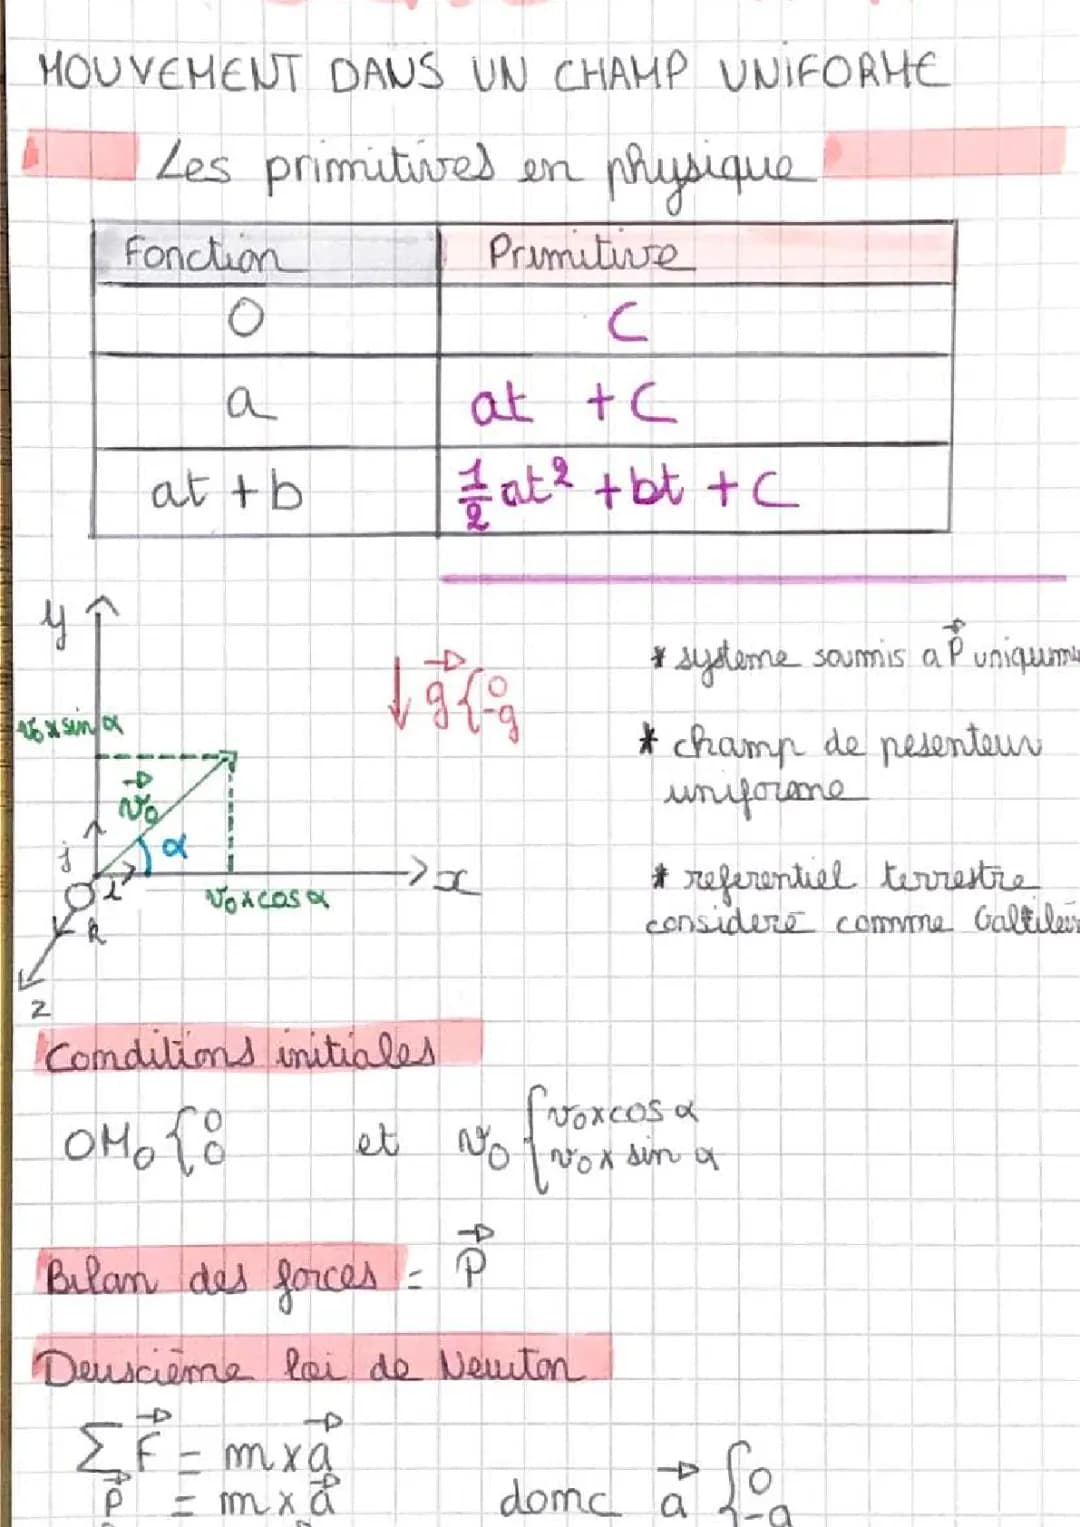 MOUVEMENT DANS UN CHAMP UNIFORME
Les primitives en physique
Fonction Primitive
0 C
a at + C
at + b 1/2 at² + bt + C
y
v₀ x sin α
v₀
α
j
i
x
v₀ x cos α
k
z
g { 0
-g
* systeme soumis a P
* champ de pesenteur
uniforme
* referentiel terrestre
considere comme
Conditions initiales
OM₀ { 0
0
et v₀ { v₀ x cos α
v₀ x sin α
Bilan des forces = P
Deuscième loi de Newton
Σ F = m x a
P = m x a
donc a { 0
-g